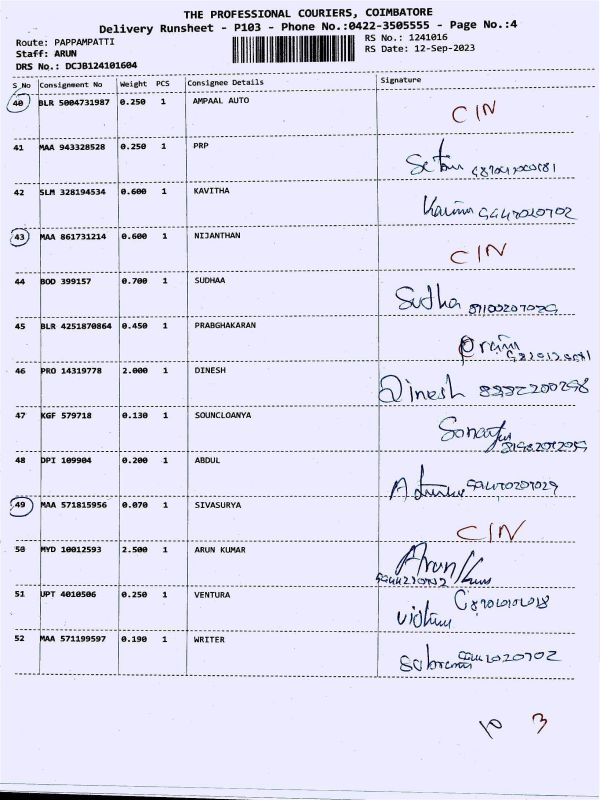 THE PROFESSIONAL COURIERS, COIMBATORE
Delivery Runsheet - P103 - Phone No.:0422-3505555 - Page No.:4
Route: PAPPAMPATTI RS No.: 1241016
Staff: ARUN RS Date: 12-Sep-2023
DRS No.: DCJB124101604
S_No Consignment No Weight PCS Consignee Details Signature
40 BLR 5004731987 0.250 1 AMPAAL AUTO CIN
41 MAA 943328528 0.250 1 PRP
42 SLM 328194534 0.600 1 KAVITHA
43 MAA 861731214 0.600 1 NIJANTHAN CIN
44 BOD 399157 0.700 1 SUDHAA Sudha
45 BLR 4251870864 0.450 1 PRABGHAKARAN
46 PRO 14319778 2.000 1 DINESH Dinesh
47 KGF 579718 0.130 1 SOUNCLOANYA
48 DPI 109904 0.200 1 ABDUL
49 MAA 571815956 0.070 1 SIVASURYA CIN
50 MYD 10012593 2.500 1 ARUN KUMAR Arun
51 UPT 4010506 0.250 1 VENTURA
52 MAA 571199597 0.190 1 WRITER
10 3